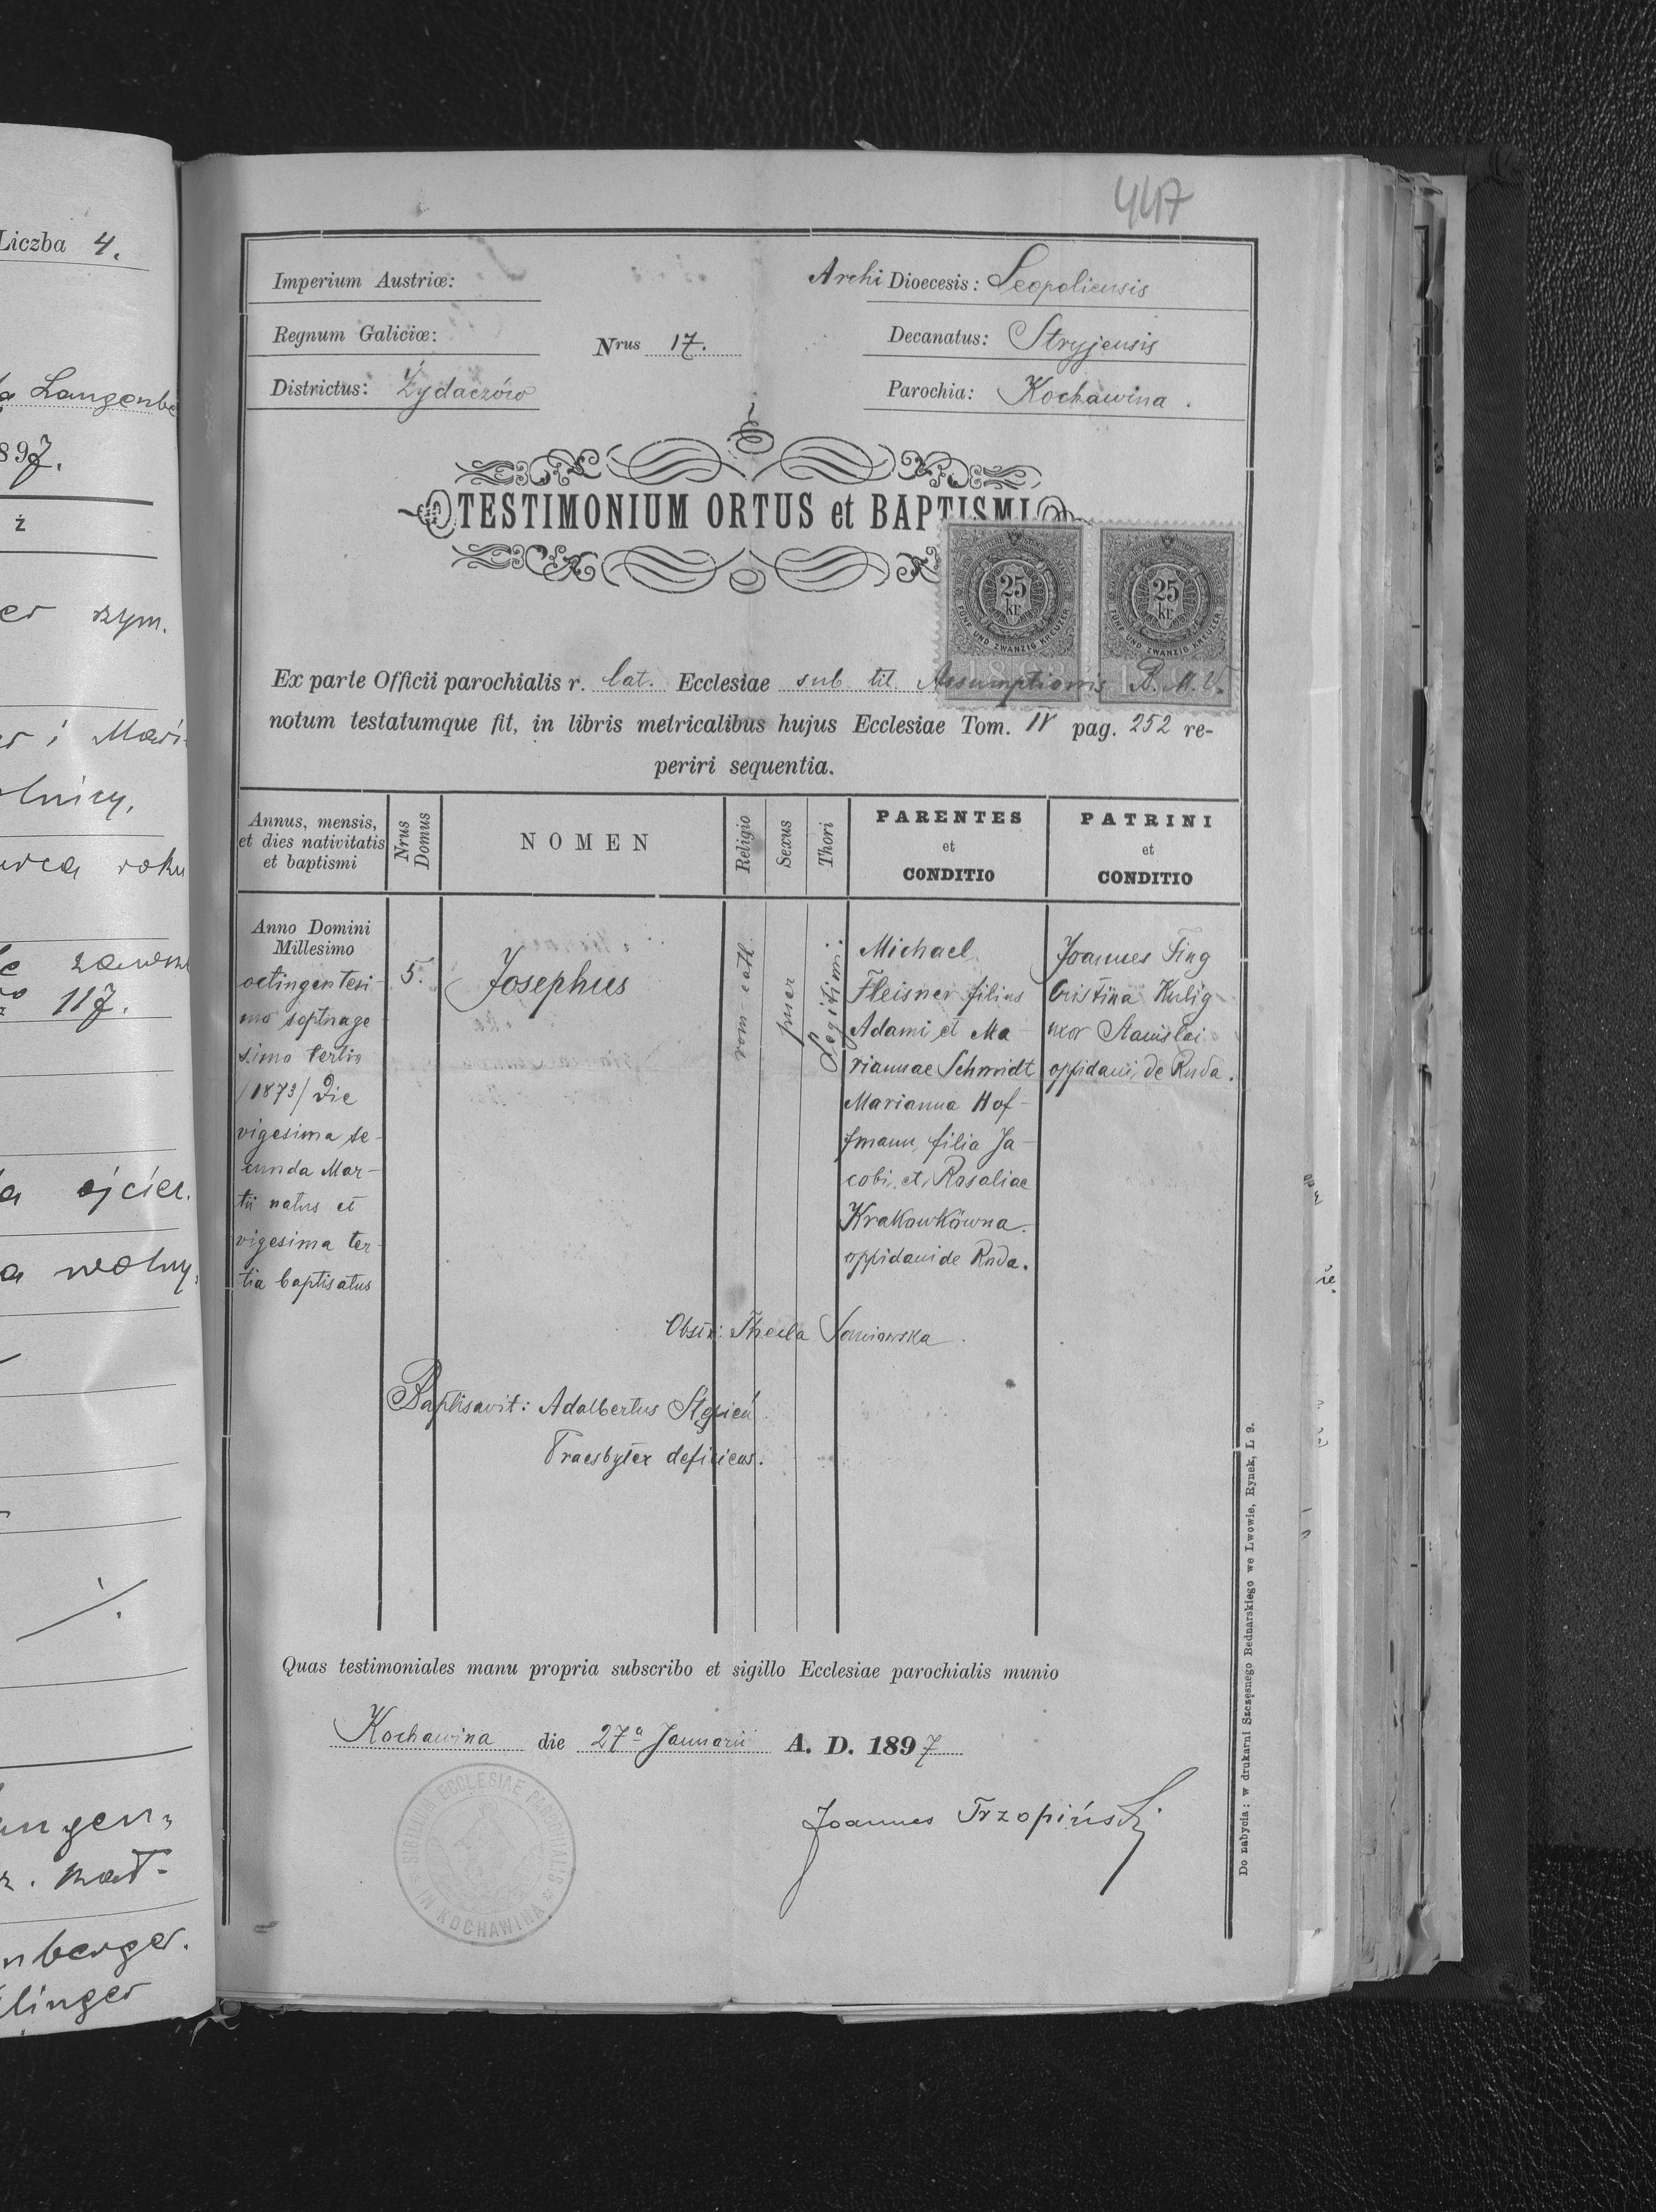 Liczba 4.
Langenbe
897.
ż
er rzym.
er i Mari
olnicy,
roku
117.
a ojciec.
a wolny,
angen-
r. kat-
nberger.
linger
447
Imperium Austriæ:
Archi Dioecesis: Leopoliensis
Regnum Galiciæ:
Nrus 17.
Decanatus: Stryjensis
Districtus: Żydaczów
Parochia: Kochawina.
TESTIMONIUM ORTUS et BAPTISMI
25 kr.
FÜNF UND ZWANZIG KREUZER
25 kr.
FÜNF UND ZWANZIG KREUZER
Ex parte Officii parochialis r. lat. Ecclesiae sub tit. Assumptionis B. M. V.
notum testatumque fit, in libris metricalibus hujus Ecclesiae Tom. IV pag. 252 re-
periri sequentia.
Annus, mensis,
et dies nativitatis
et baptismi
Nrus
Domus
NOMEN
Religio
Sexus
Thori
PARENTES
et
CONDITIO
PATRINI
et
CONDITIO
Anno Domini
Millesimo
octingentesi-
mo septuage
simo tertio
/1873/ Die
vigesima se-
cunda Mar-
tii natus et
vigesima ter-
tia baptisatus
5.
Josephus
rom-cath.
puer
Legitimi.
Michael
Fleisner filius
Adami et Ma-
riannae Schmidt
Marianna Hof-
fmann, filia Ja-
cobi, et Rosaliae
Krakowkówna.
oppidani de Ruda.
Joannes Fing
Cristina Kulig
uxor Stanislai
oppidani de Ruda.
Obstr: Thecla
Baptisavit: Adalbertus Stępień
Praesbyter deficiens.
Quas testimoniales manu propria subscribo et sigillo Ecclesiae parochialis munio
Kochawina die 27a Januarii A. D. 1897
Joannes Trzopiński
SIGILLUM ECCLESIAE PAROCHIALIS
IN KOCHAWINA
Do nabycia: w drukarni Szczęsnego Bednarskiego we Lwowie, Rynek, L 9.